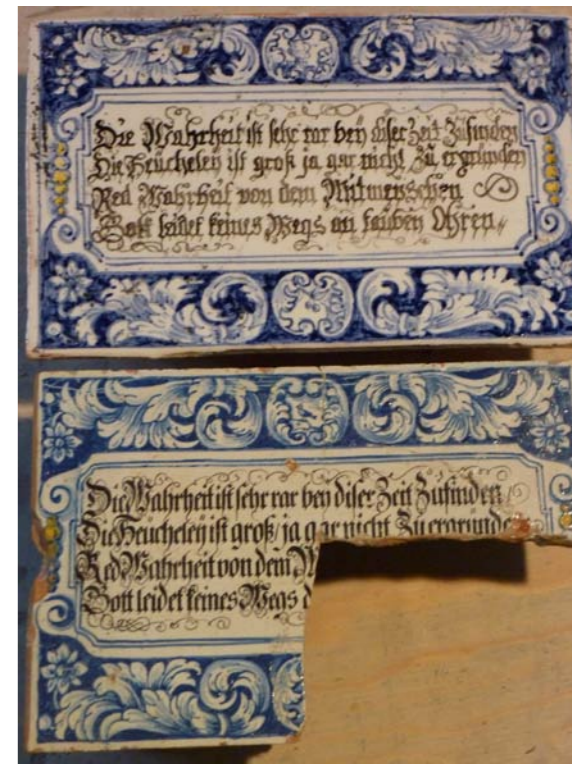 Die Wahrheit ist sehr rar bey diser Zeit Zufinden
Die Heücheley ist groß ja gar nicht Zu ergründen
Red Wahrheit von dem Mitmenschen
Gott leidet keines Wegs an tauben Ohren
Die Wahrheit ist sehr rar bey diser Zeit Zufinden
Die Heucheley ist groß/ ja gar nicht Zu ergründe
Red Wahrheit von dem M
Gott leidet keines Wegs d